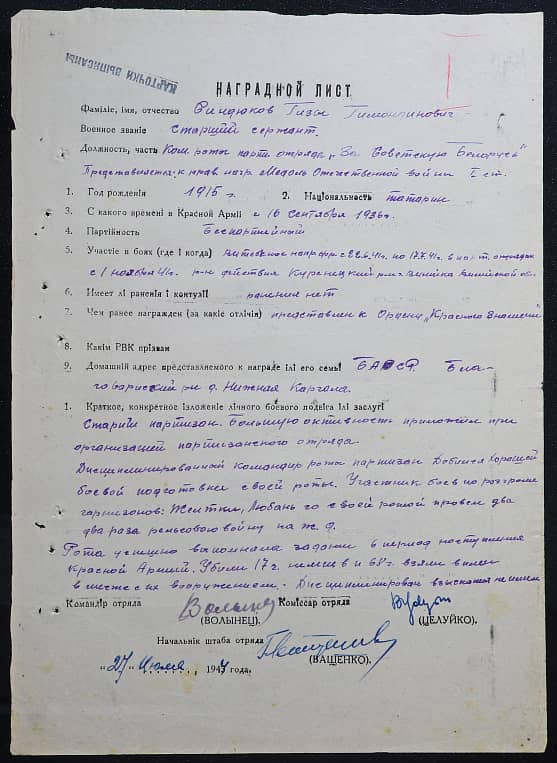 КАРТОЧКИ ВЫПИСАНЫ
НАГРАДНОЙ ЛИСТ.
Фамілiе, імя, отчество Синдюков Гизы Гимонтинович
Военное званіе старший сержант.
Должность, часть Ком. роты парт. отряда „За Советскую Беларусь"
Представляется к прав. нагр. Медаль Отечественной войны I ст.
1. Год рождения 1915 г. 2. Національность татарин
3. С какого времені в Красной Армії с 16 сентября 1936 г.
4. Партійность Беспартийный
5. Участіе в боях (где і когда) Витебское напр с 22.6.41 г. по 17.X.41 г. в парт. отрядах
с 1 ноября 41 г. р-н действия Куренецкий
6. Імеет лі раненія і контузіі ранения нет
7. Чем ранее награжден (за какіе отлічія) представлен к Ордену „Красного Знамени
8. Какім РВК прізван
9. Домашній адрес представляемого к награде ілі его семьі БАССР. Бла-
говарский рн д. Нижняя Каргала.
1. Краткое, конкретное ізложеніе лічного боевого подвіга ілі заслугі
Старый партизан. Большую активность приложил при
организаций партизанского отряда.
Дисциплинированный командир роты партизан Добился хорошей
боевой подготовки своей роты. Участник боев по разгроме
гарнизонов: Жентки, Любань со своей ротой провел два
два раза рельсовою войну на ж.д.
Рота успешно выполнила задание в период наступления
Красной Армий. Убили 17 г. немцев и 68 г. взяли в плен
вместе с их вооружением. Дисциплинирован
Командір отряда Комиссар отряда
(ВОЛЫНЕЦ). (ЦЕЛУЙКО).
Начальнік штаба отряда
(ВАЩЕНКО).
„27" Июля 1944 года.